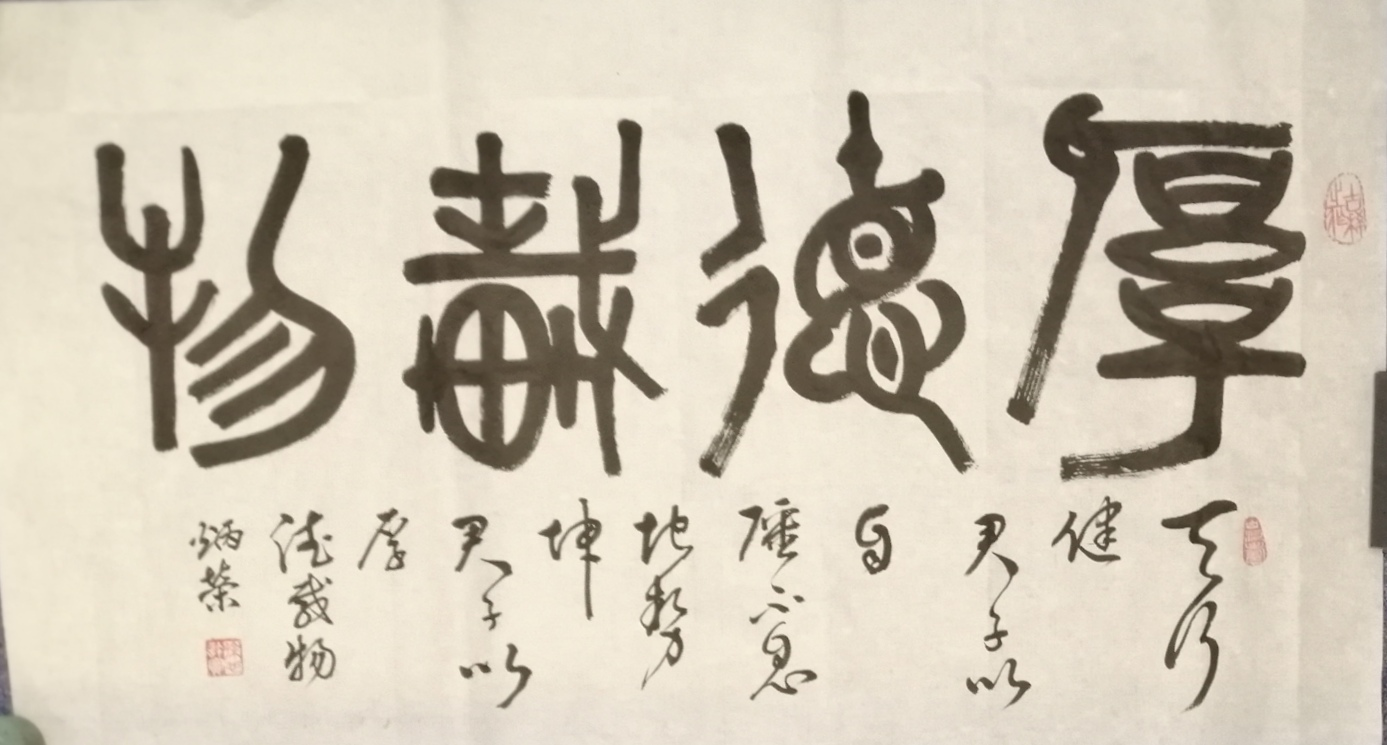 厚德載物
天行
健
君子以
自
強不息
地勢
坤
君子以
厚
德載物
炳榮